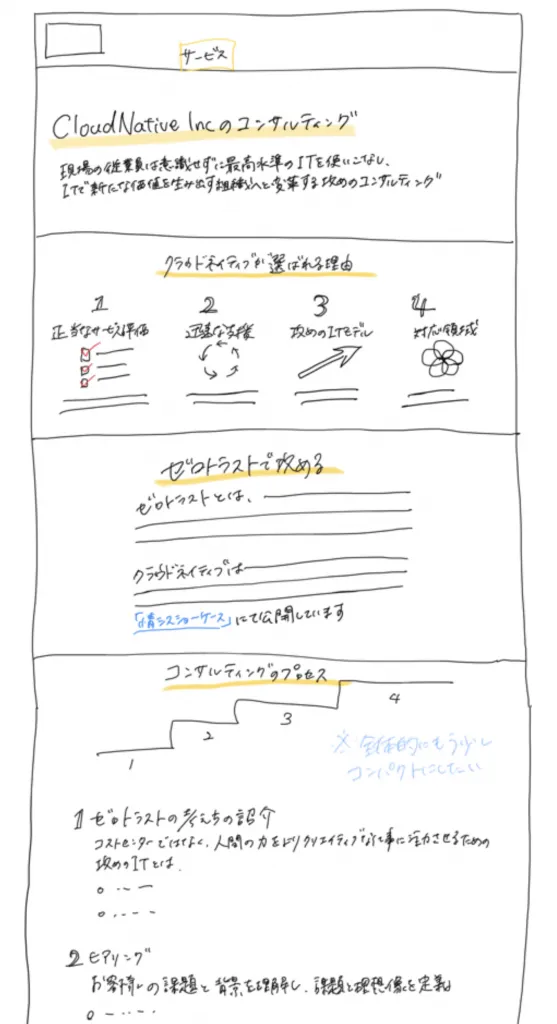 サービス
CloudNative Incのコンサルティング
現場の従業員は意識せずに最高水準のITを使いこなし、
ITで新たな価値を生み出す組織へと変革する攻めのコンサルティング
クラウドネイティブが選ばれる理由
1 2 3 4
正当なサービス評価 迅速な支援 攻めのITモデル 対応領域
ゼロトラストで攻める
ゼロトラストとは、
クラウドネイティブは
「情シスショーケース」にて公開しています
コンサルティングのプロセス
1 2 3 4
※全体的にもう少し
コンパクトにしたい
1 ゼロトラストの考え方の紹介
コストセンターではなく、人間の力をよりクリエイティブな仕事に注力させるための
攻めのITとは
2 ヒアリング
お客様の課題と背景を理解し、課題と理想像を定義